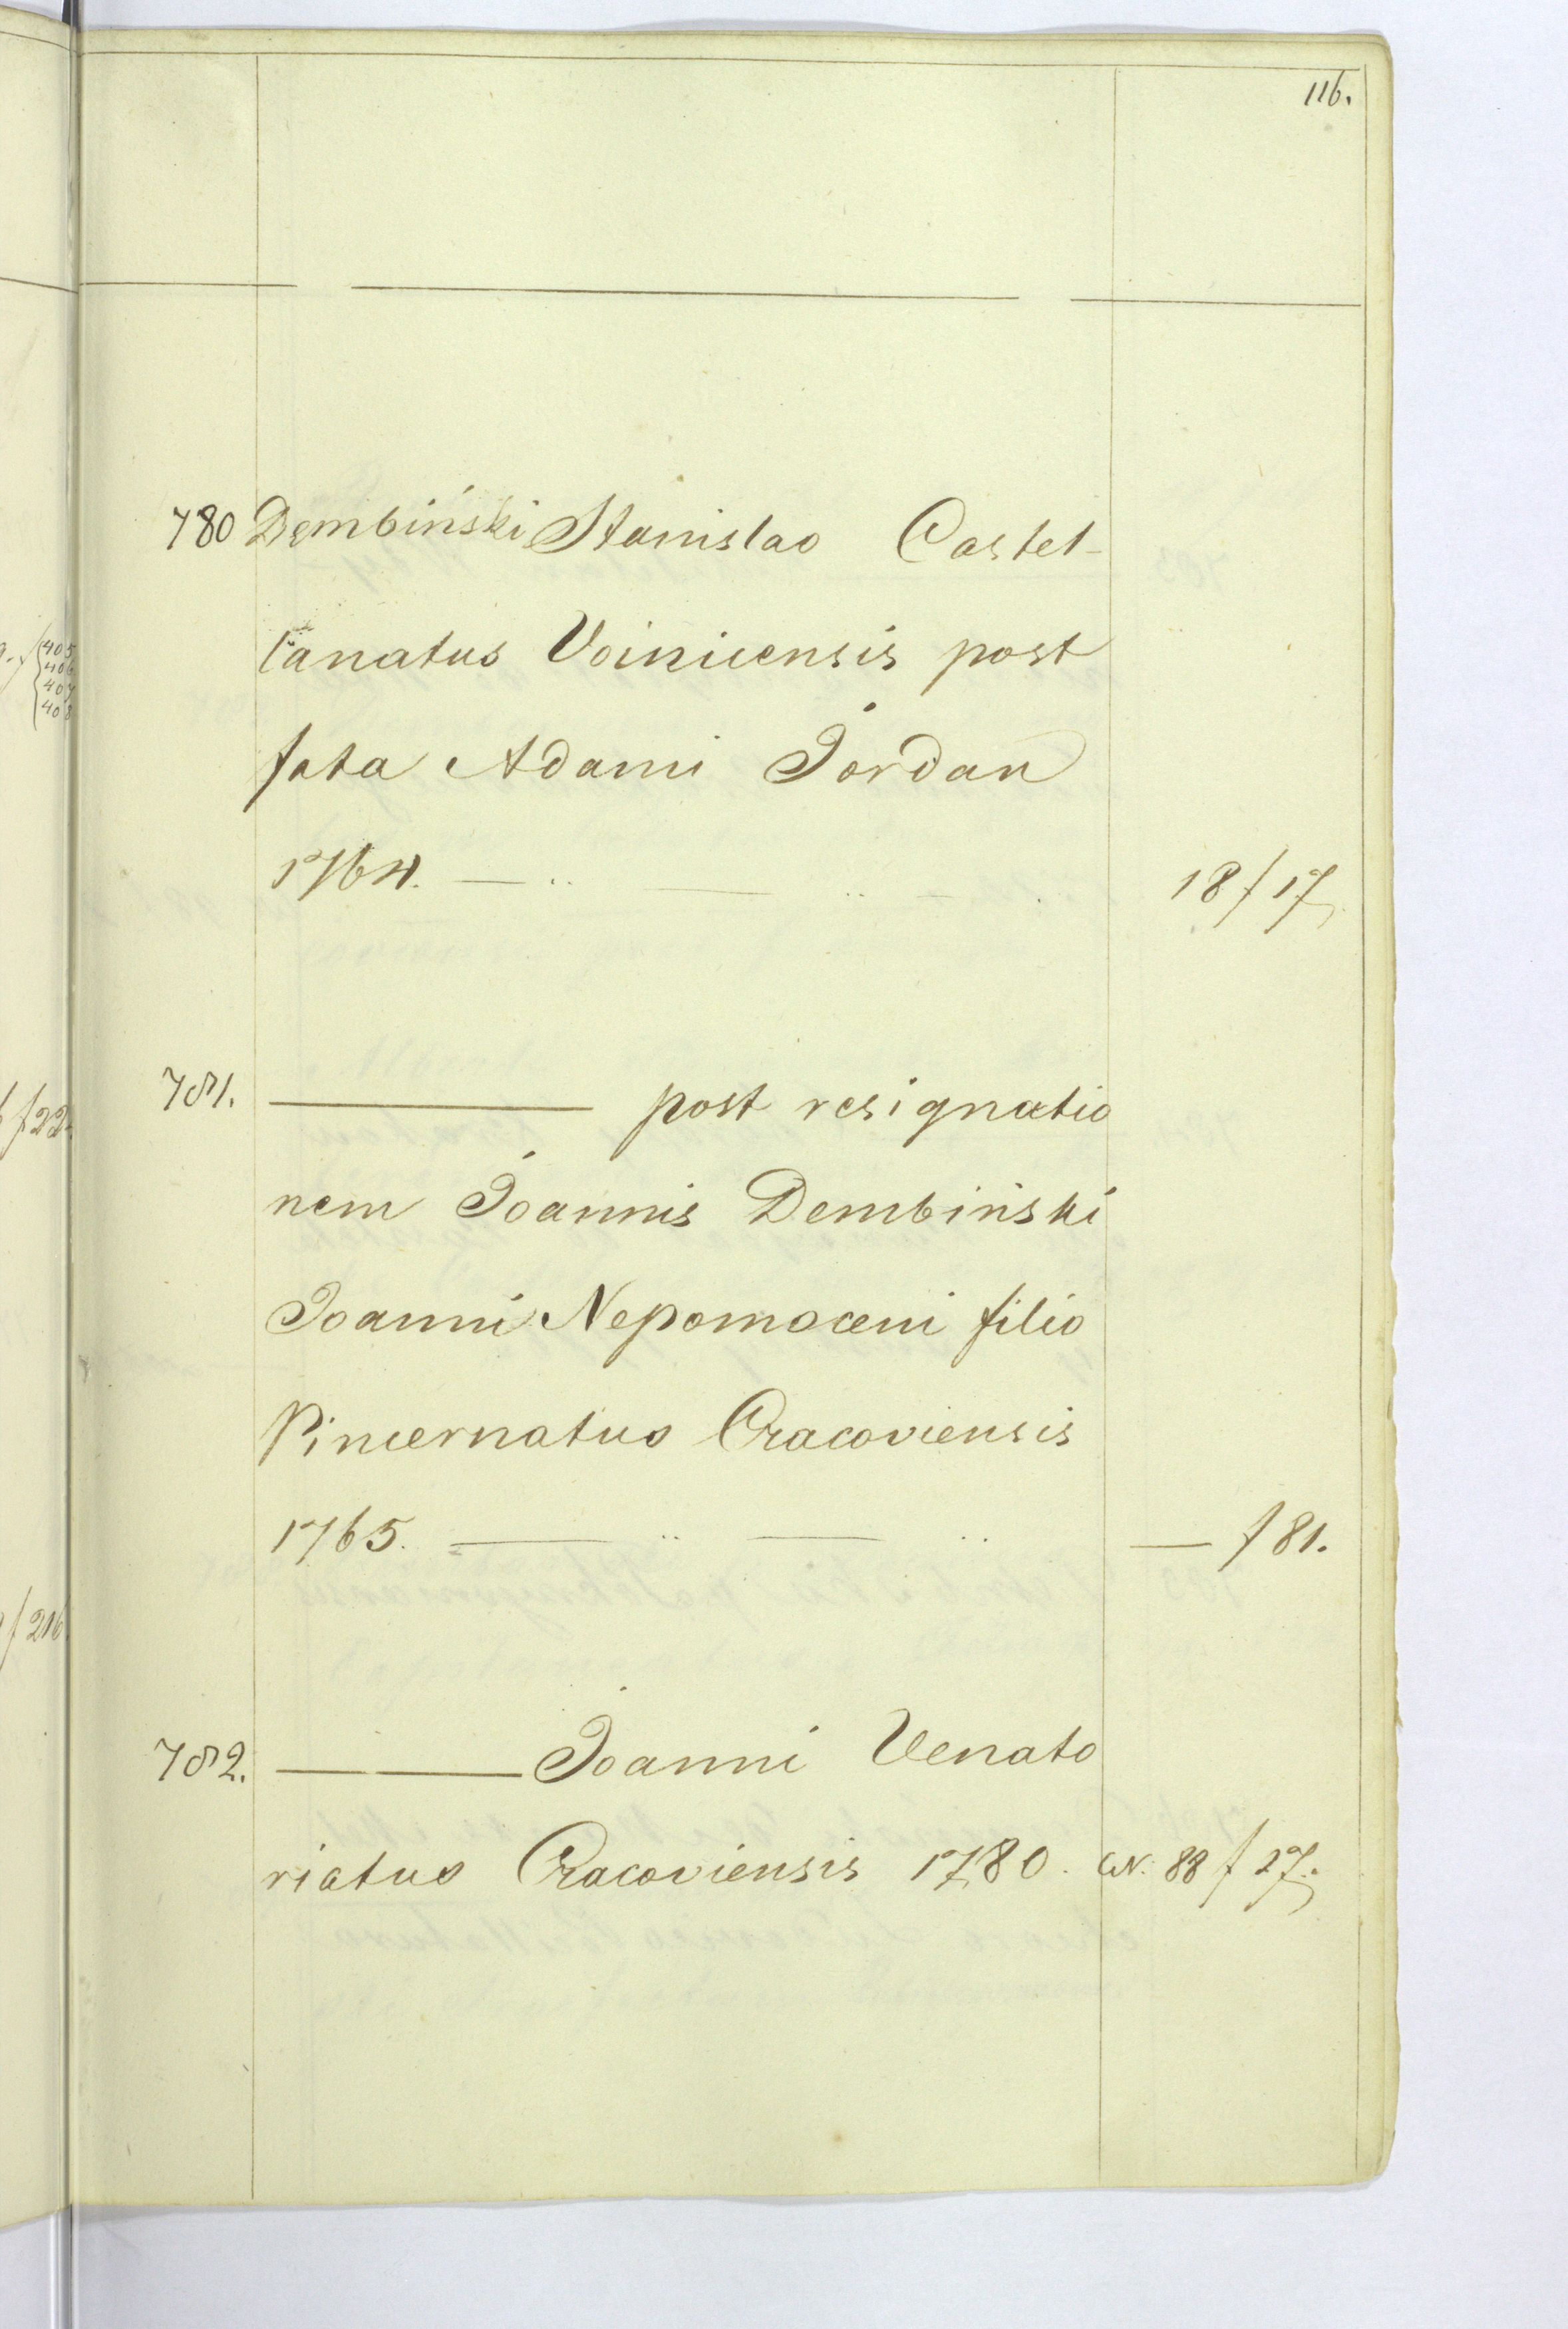 116.
780 Dembiński Stanislao Castel-
lanatus Voinicensis post
fata Adami Jordan
1764. — .. — .. — 18 f 17
781. ——— post resignatio
nem Joannis Dembiński
Joanni Nepomoceni filio
Pincernatus Cracoviensis
1765. — .. — .. — f 81.
782. ——— Joanni Venato
riatus Cracoviensis 1780. W. 88 f 27.
405
406
407
408
f 22
f 216